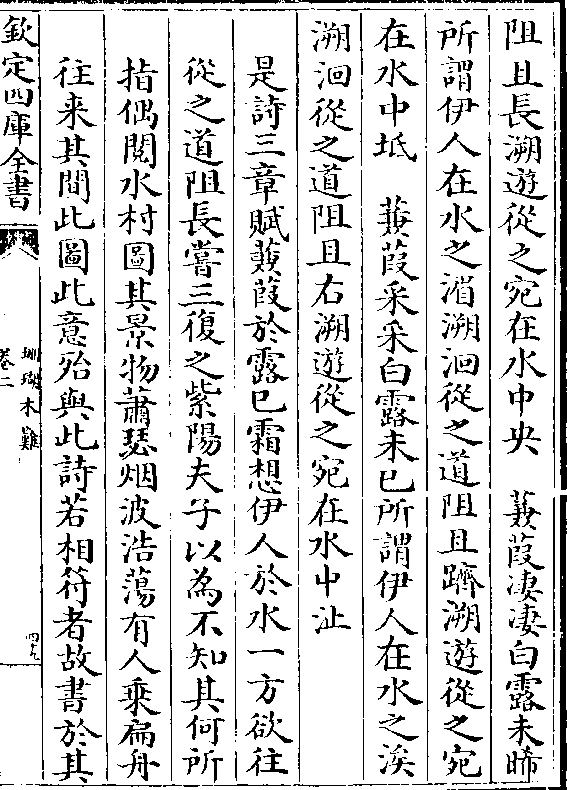 阻且長溯遊從之宛在水中央　蒹葭凄凄白露未晞
所謂伊人在水之湄溯洄從之道阻且躋溯遊從之宛
在水中坻　蒹葭采采白露未已所謂伊人在水之涘
溯洄從之道阻且右溯遊從之宛在水中沚
是詩三章賦蒹葭於露已霜想伊人於水一方欲往
從之道阻長嘗三復之紫陽夫子以為不知其何所
指偶閱水村圖其景物蕭瑟烟波浩蕩有人乗扁舟
往来其間此圖此意殆與此詩若相符者故書於其
欽定四庫全書
珊瑚木難
卷二